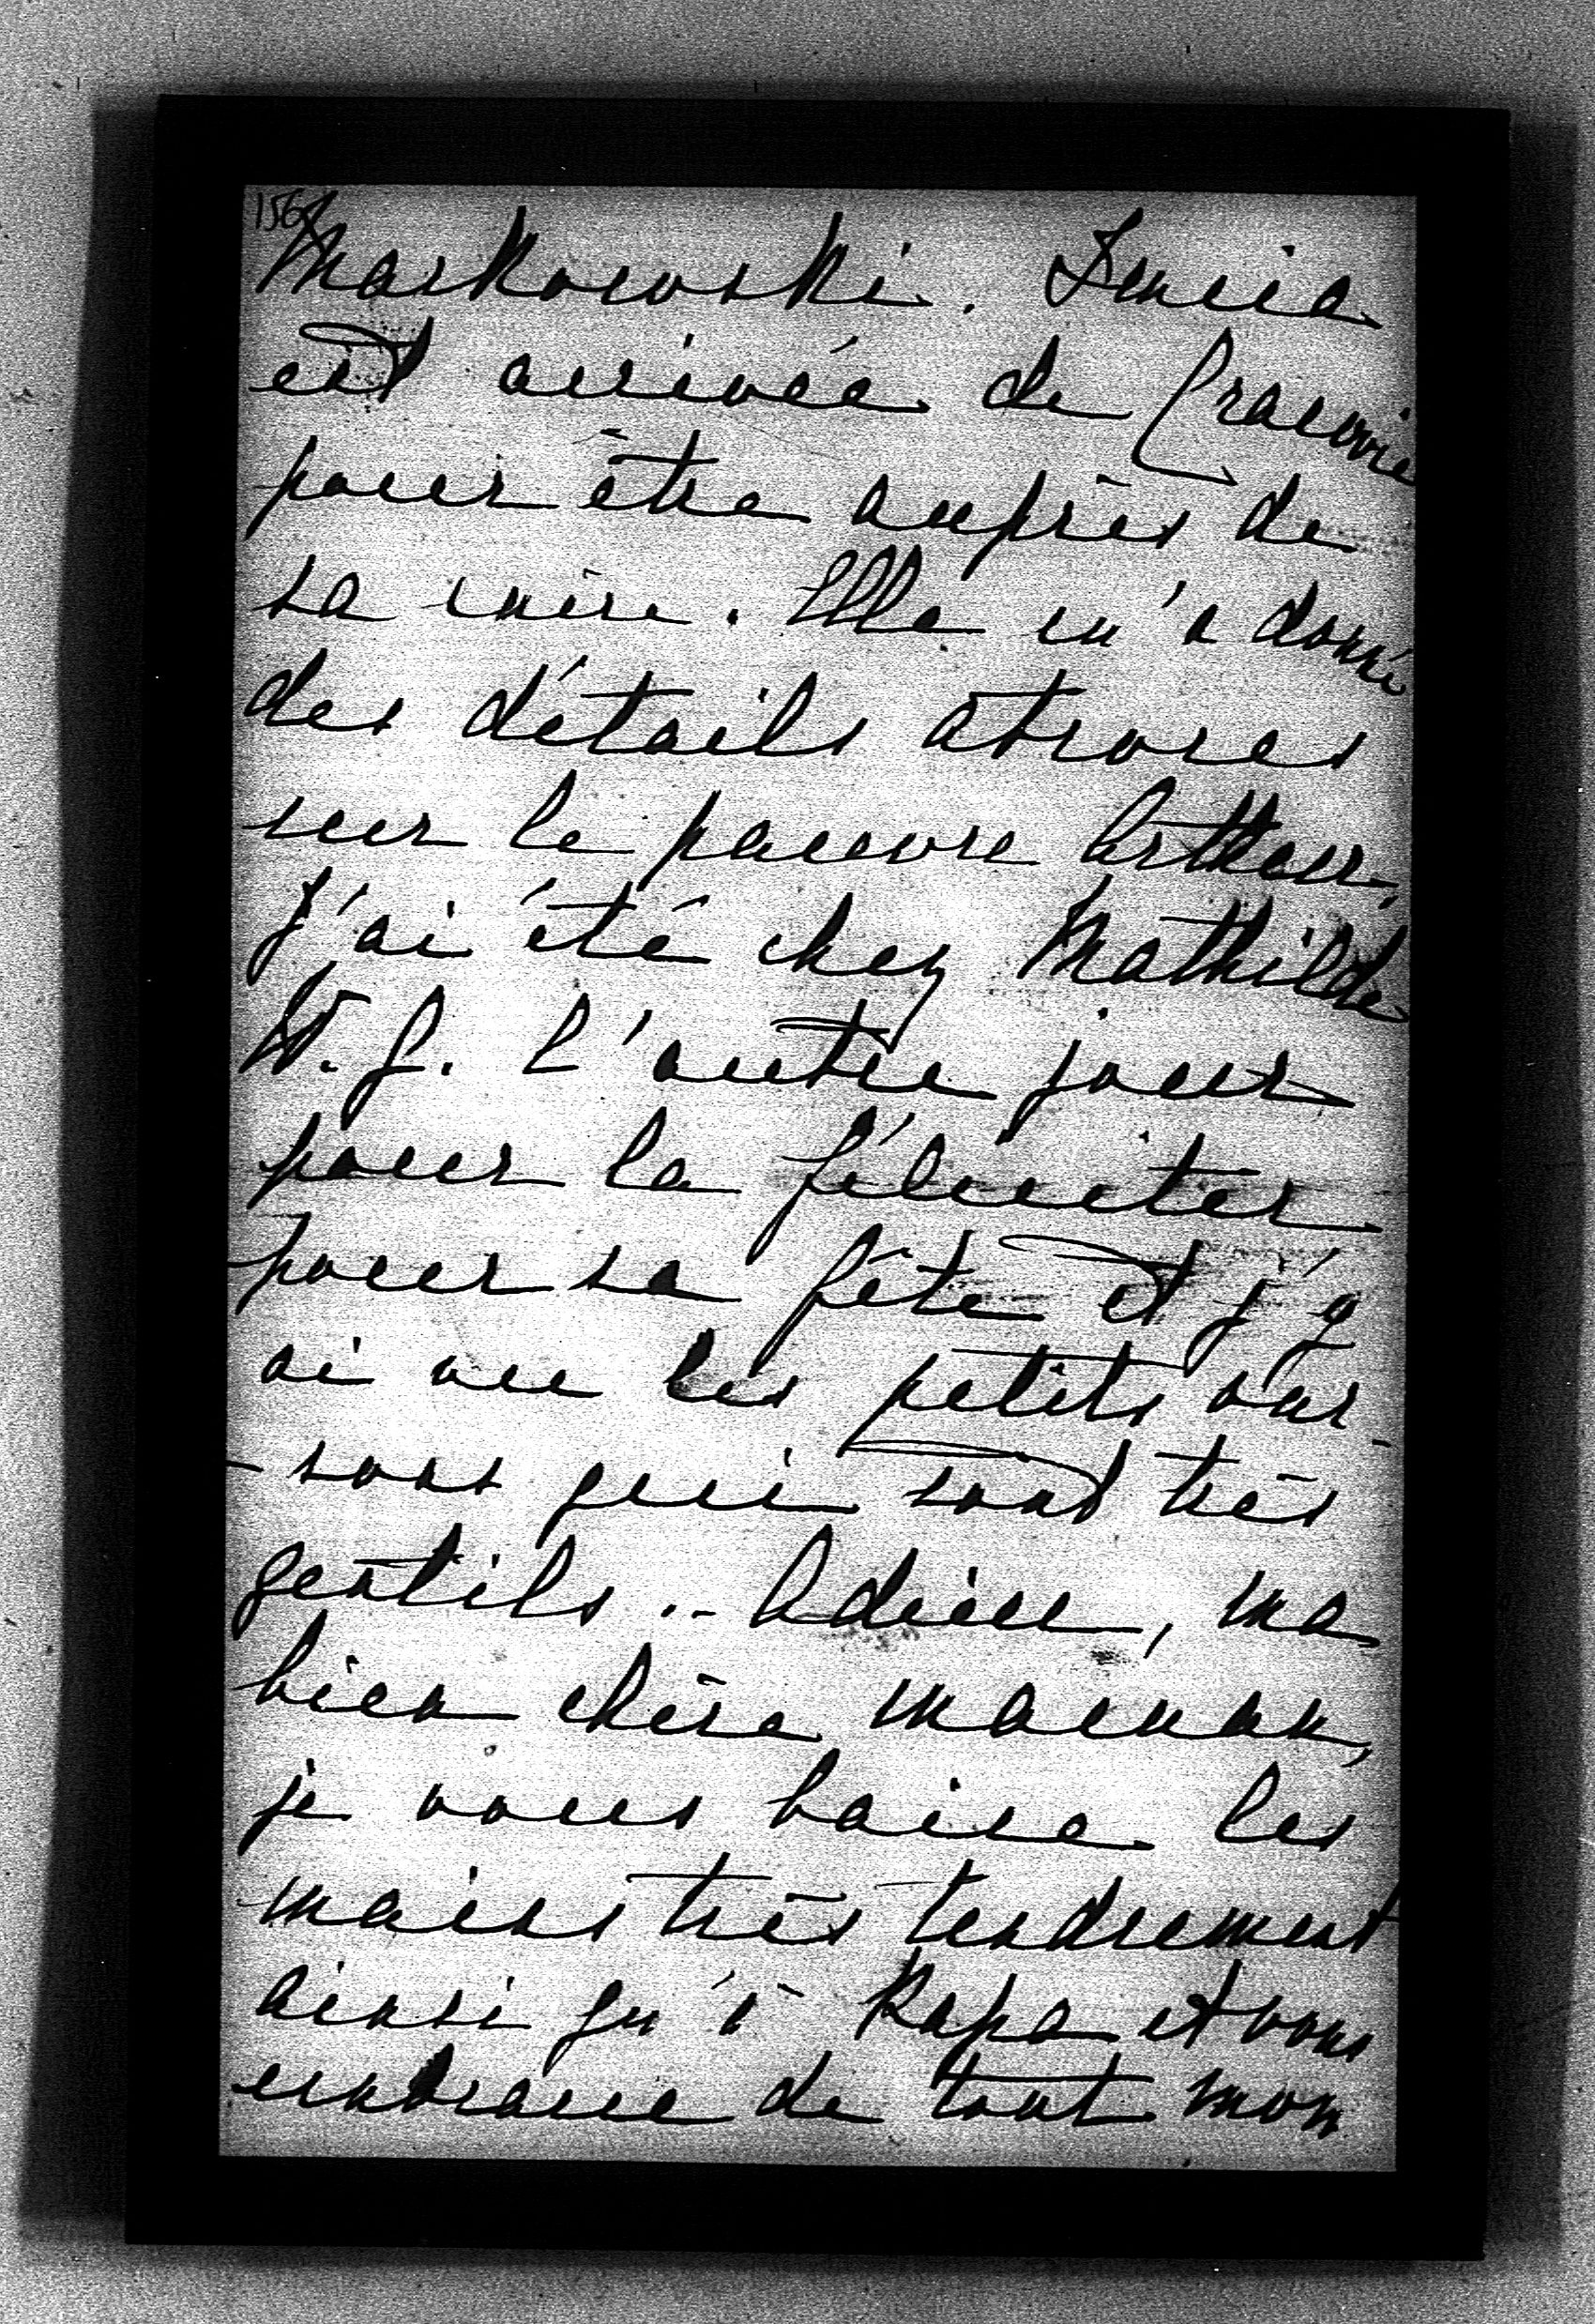 156
Markowski. Imcia
est arrivée de Cracovie
pour être auprès de
sa mère. Elle m'a donné
des détails atroces
sur le pauvre Artheur.
J'ai été chez Mathilde
W. G. l'autre jour
pour la féliciter
pour sa fête et j'y
ai vu les petits our-
-sons qui sont très
gentils.. - Adieu, ma
bien chère maman,
je vous baise les
mains très tendrement
ainsi qu'à Papa et vous
embrasse de tout mon